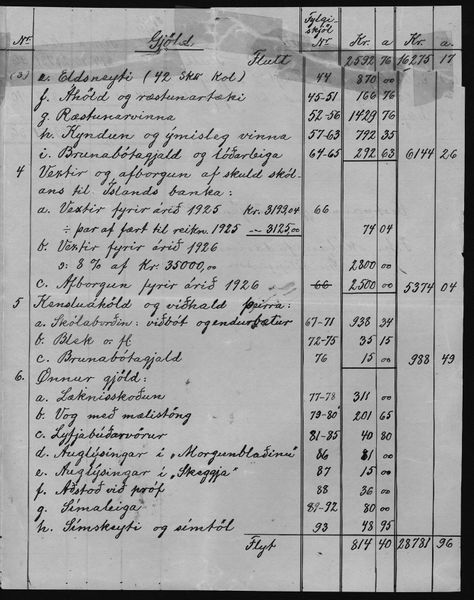 Fylgi-
skjöl
Nr. Gjöld Nr. Kr. a Kr. a.
Flutt 2592 76 16275 17
(3) e. Eldsneyti (42 sk℔ kol) 44 870 00
f. Áhöld og ræstunartæki 45-51 166 76
g. Ræstunarvinna 52-56 1429 76
h. Kyndun og ýmisleg vinna 57-63 792 35
i. Brunabótagjald og lóðarleiga 64-65 292 63 6144 26
4 Vextir og afborgun af skuld skól-
ans til Íslands banka:
a. Vextir fyrir árið 1925 kr. 3199.04 66
÷ þar af fært til reikn. 1925 - 3125,00 74 04
b. Vextir fyrir árið 1926
ɔ: 8% af Kr. 35000,00 2800 00
c. Afborgun fyrir árið 1926 66 2500 00 5374 04
5 Kensluáhöld og viðhald þeirra:
a. Skólaborðin: viðbót og endurbætur 67-71 938 34
b. Blek o. fl 72-75 35 15
c. Brunabótagjald 76 15 00 988 49
6. Önnur gjöld:
a. Læknisskoðun 77-78 311 00
b. Vog með mælistöng 79-80 201 65
c. Lyfjabúðarvörur 81-85 40 80
d. Auglýsingar í „Morgunblaðinu" 86 81 00
e. Auglýsingar í „Skeggja" 87 15 00
f. Aðstoð við próf 88 36 00
g. Símaleiga 89-92 80 00
h. Símskeyti og símtöl 93 48 95
Flyt 814 40 28781 96